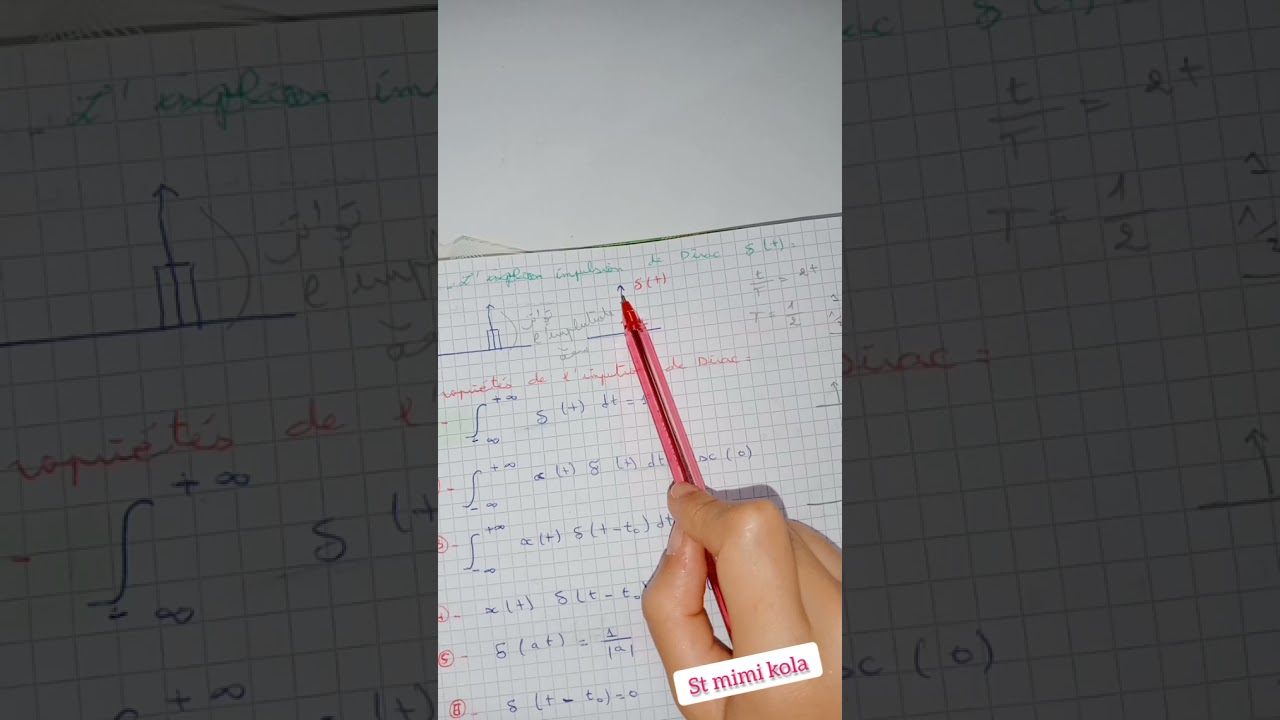 - L' implision impulsion de Dirac δ(t) =
δ(t)
t/T = 2t
T = 1/2
l'amplitude
ropriétés de l'impulsion de Dirac =
- ∫_{-∞}^{+∞} δ(t) dt = 1
- ∫_{-∞}^{+∞} x(t) δ(t) dt x(0)
3)- ∫_{-∞}^{+∞} x(t) δ(t-t₀) dt
4)- x(t) δ(t-t₀)
5- δ(at) = 1/|a|
δ(t-t₀)=0
St mimi kola